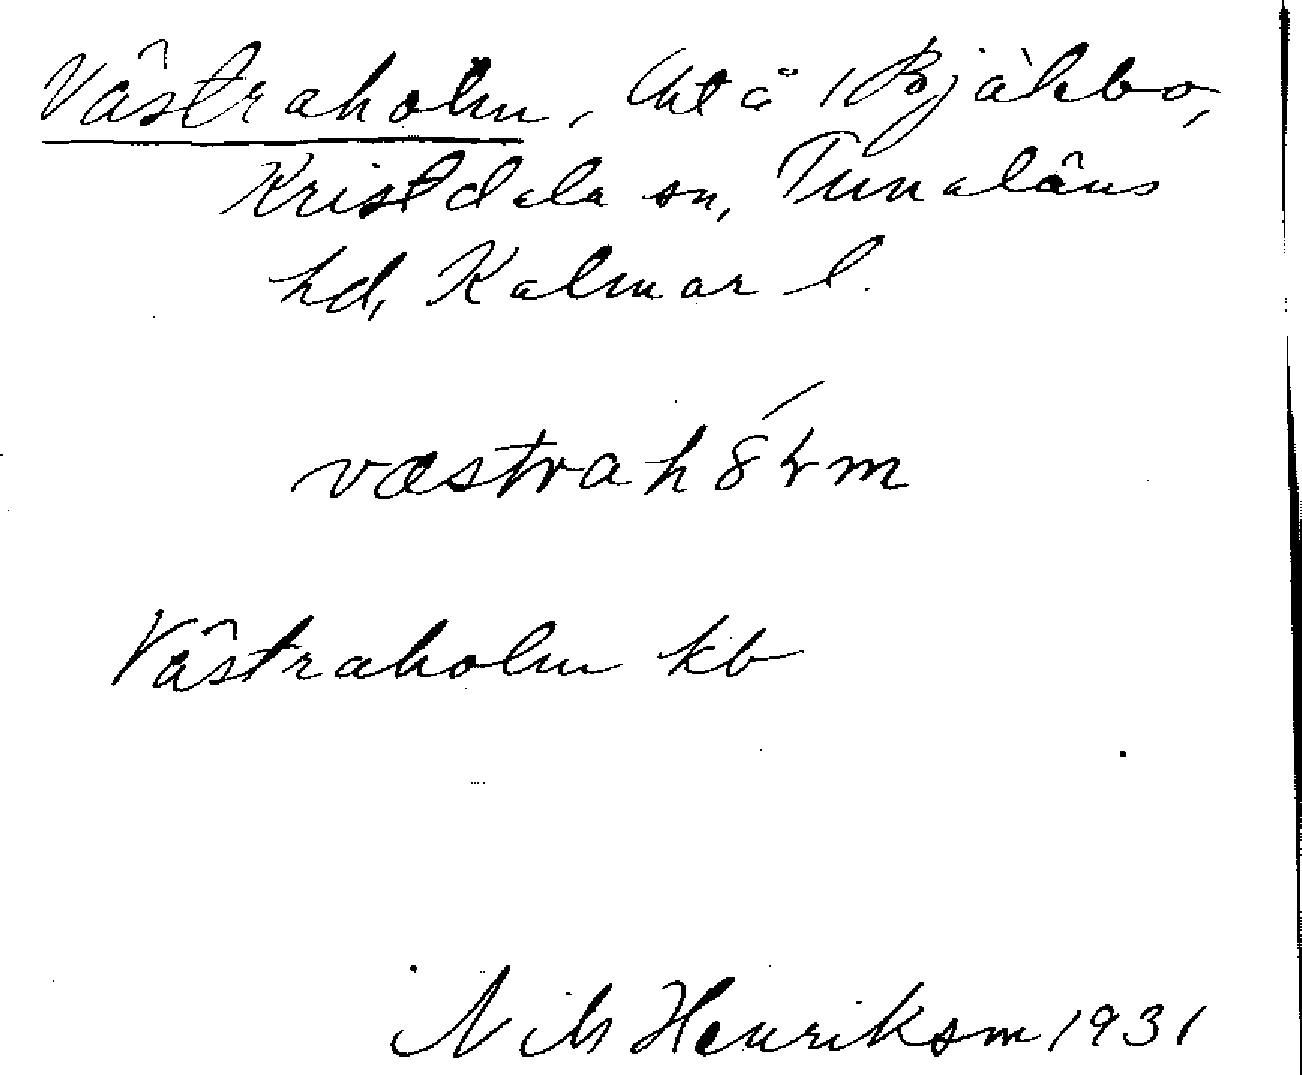 Västraholm, Aktå 1 Bjälebo,
Kristdala sn, Tunaläns
hd, Kalmar l.
væstrah8m
Västraholm kb
Nils Henriksson 1931